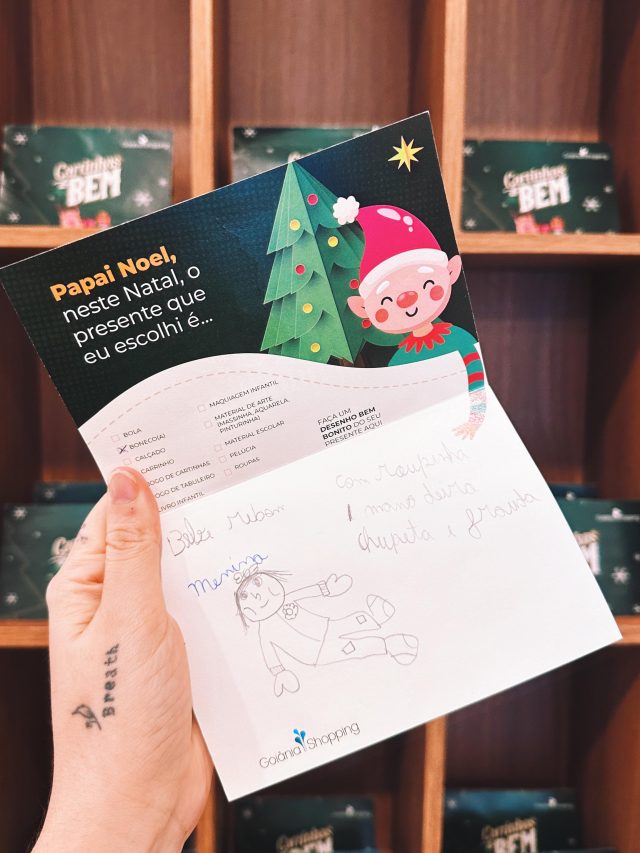 Cartinhas
do BEM
Cartinhas
do BEM
Cartinhas
do BEM
Papai Noel,
neste Natal, o
presente que
eu escolhi é...
BOLA
BONECO(A)
CALÇADO
CARRINHO
JOGO DE CARTINHAS
JOGO DE TABULEIRO
LIVRO INFANTIL
MAQUIAGEM INFANTIL
MATERIAL DE ARTE
(MASSINHA, AQUARELA,
PINTURINHA)
MATERIAL ESCOLAR
PELUCIA
ROUPAS
FAÇA UM
DESENHO BEM
BONITO DO SEU
PRESENTE AQUI
Bebe rebon
Menina
con roupinha
1 mano deira
chupeta e frauda
Goiânia Shopping
Breath
Cartinhas
BEM
Cartinhas
BEM